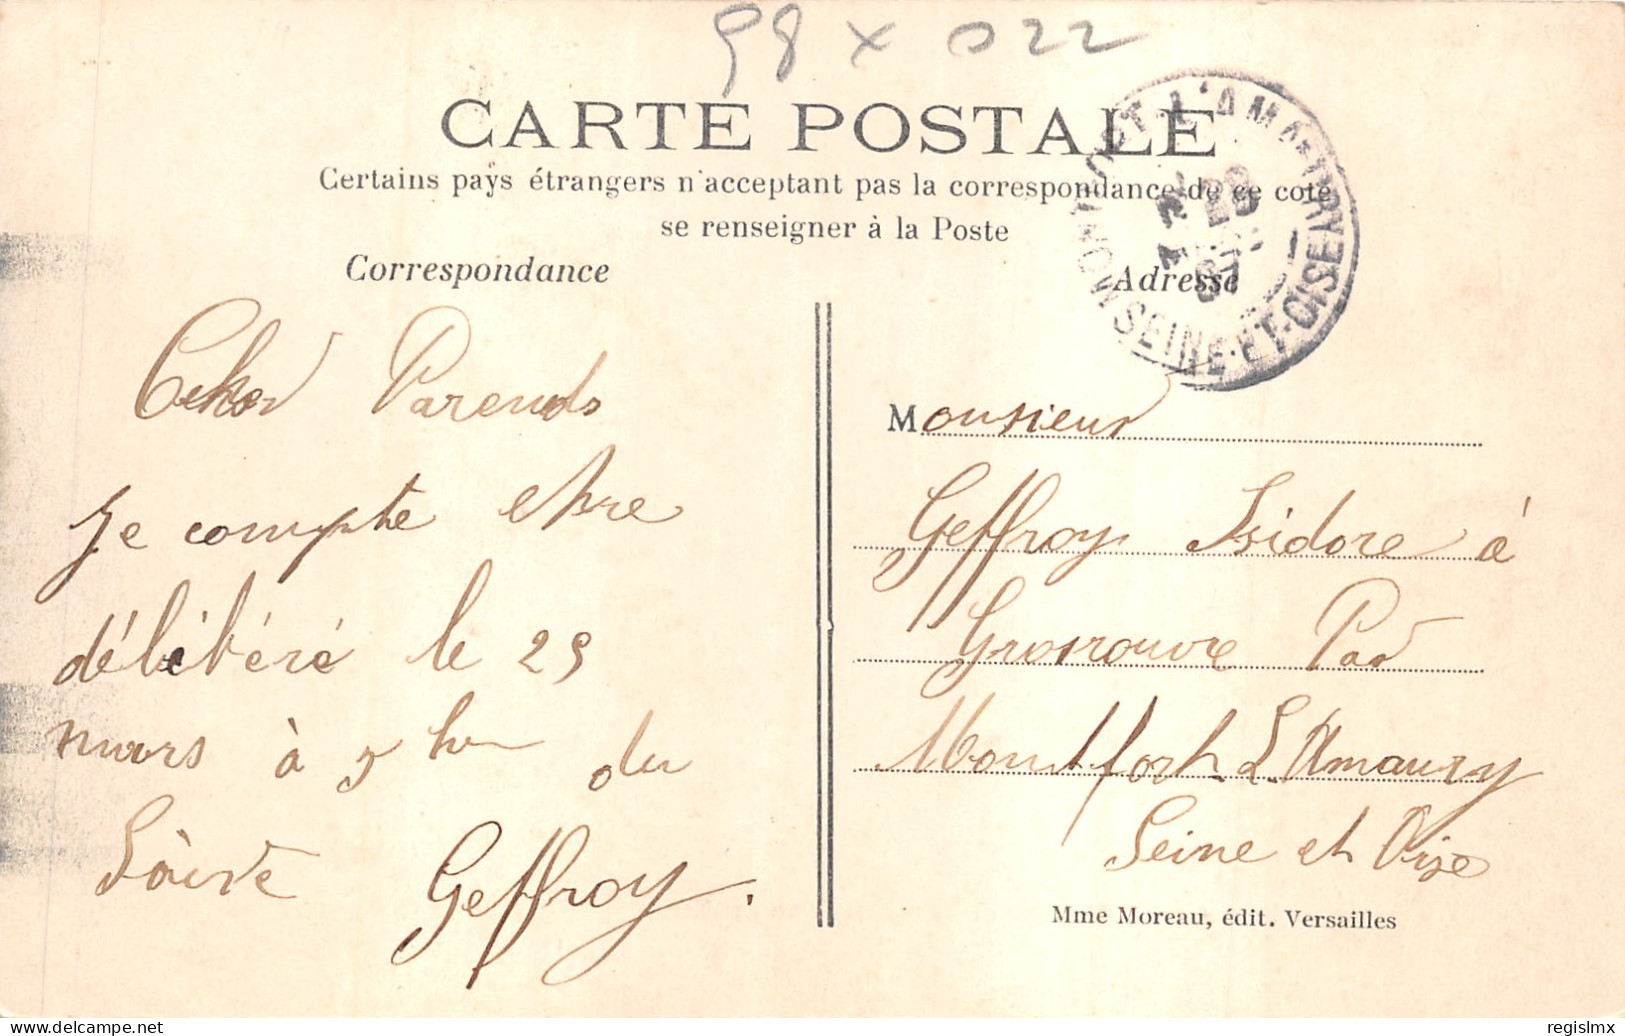 98 x 022
CARTE POSTALE
Certains pays étrangers n'acceptant pas la correspondance de ce coté
se renseigner à la Poste
Correspondance
Parends
Je compte etre
délibéré le 29
mars à 5 hr du
Soire
Geffroy.
Adresse
Monsieur
Geffroy Isidore à
Grosrouvre Par
Montfort L'Amaury
Seine et Oise
Mme Moreau, édit. Versailles
MONTFORT-L'AMAURY
SEINE-ET-OISE
www.delcampe.net
regislmx